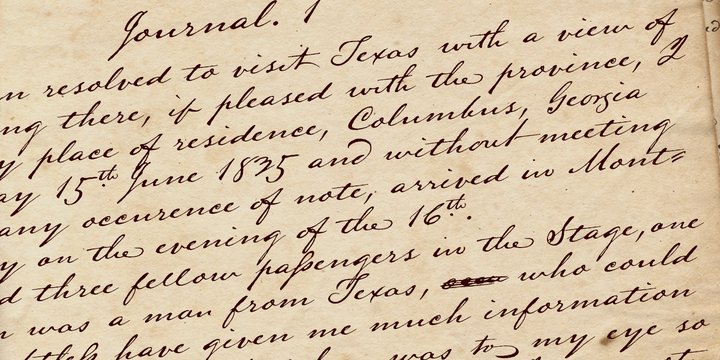 Journal. 1
resolved to visit Texas with a view of
ng there, if pleased with the province, I
y place of residence, Columbus, Georgia
ay 15th June 1835 and without meeting
any occurence of note, arrived in Mont=
y on the evening of the 16th.
d three fellow passengers in the Stage, one
was a man from Texas, who could
have given me much information
was to my eye so